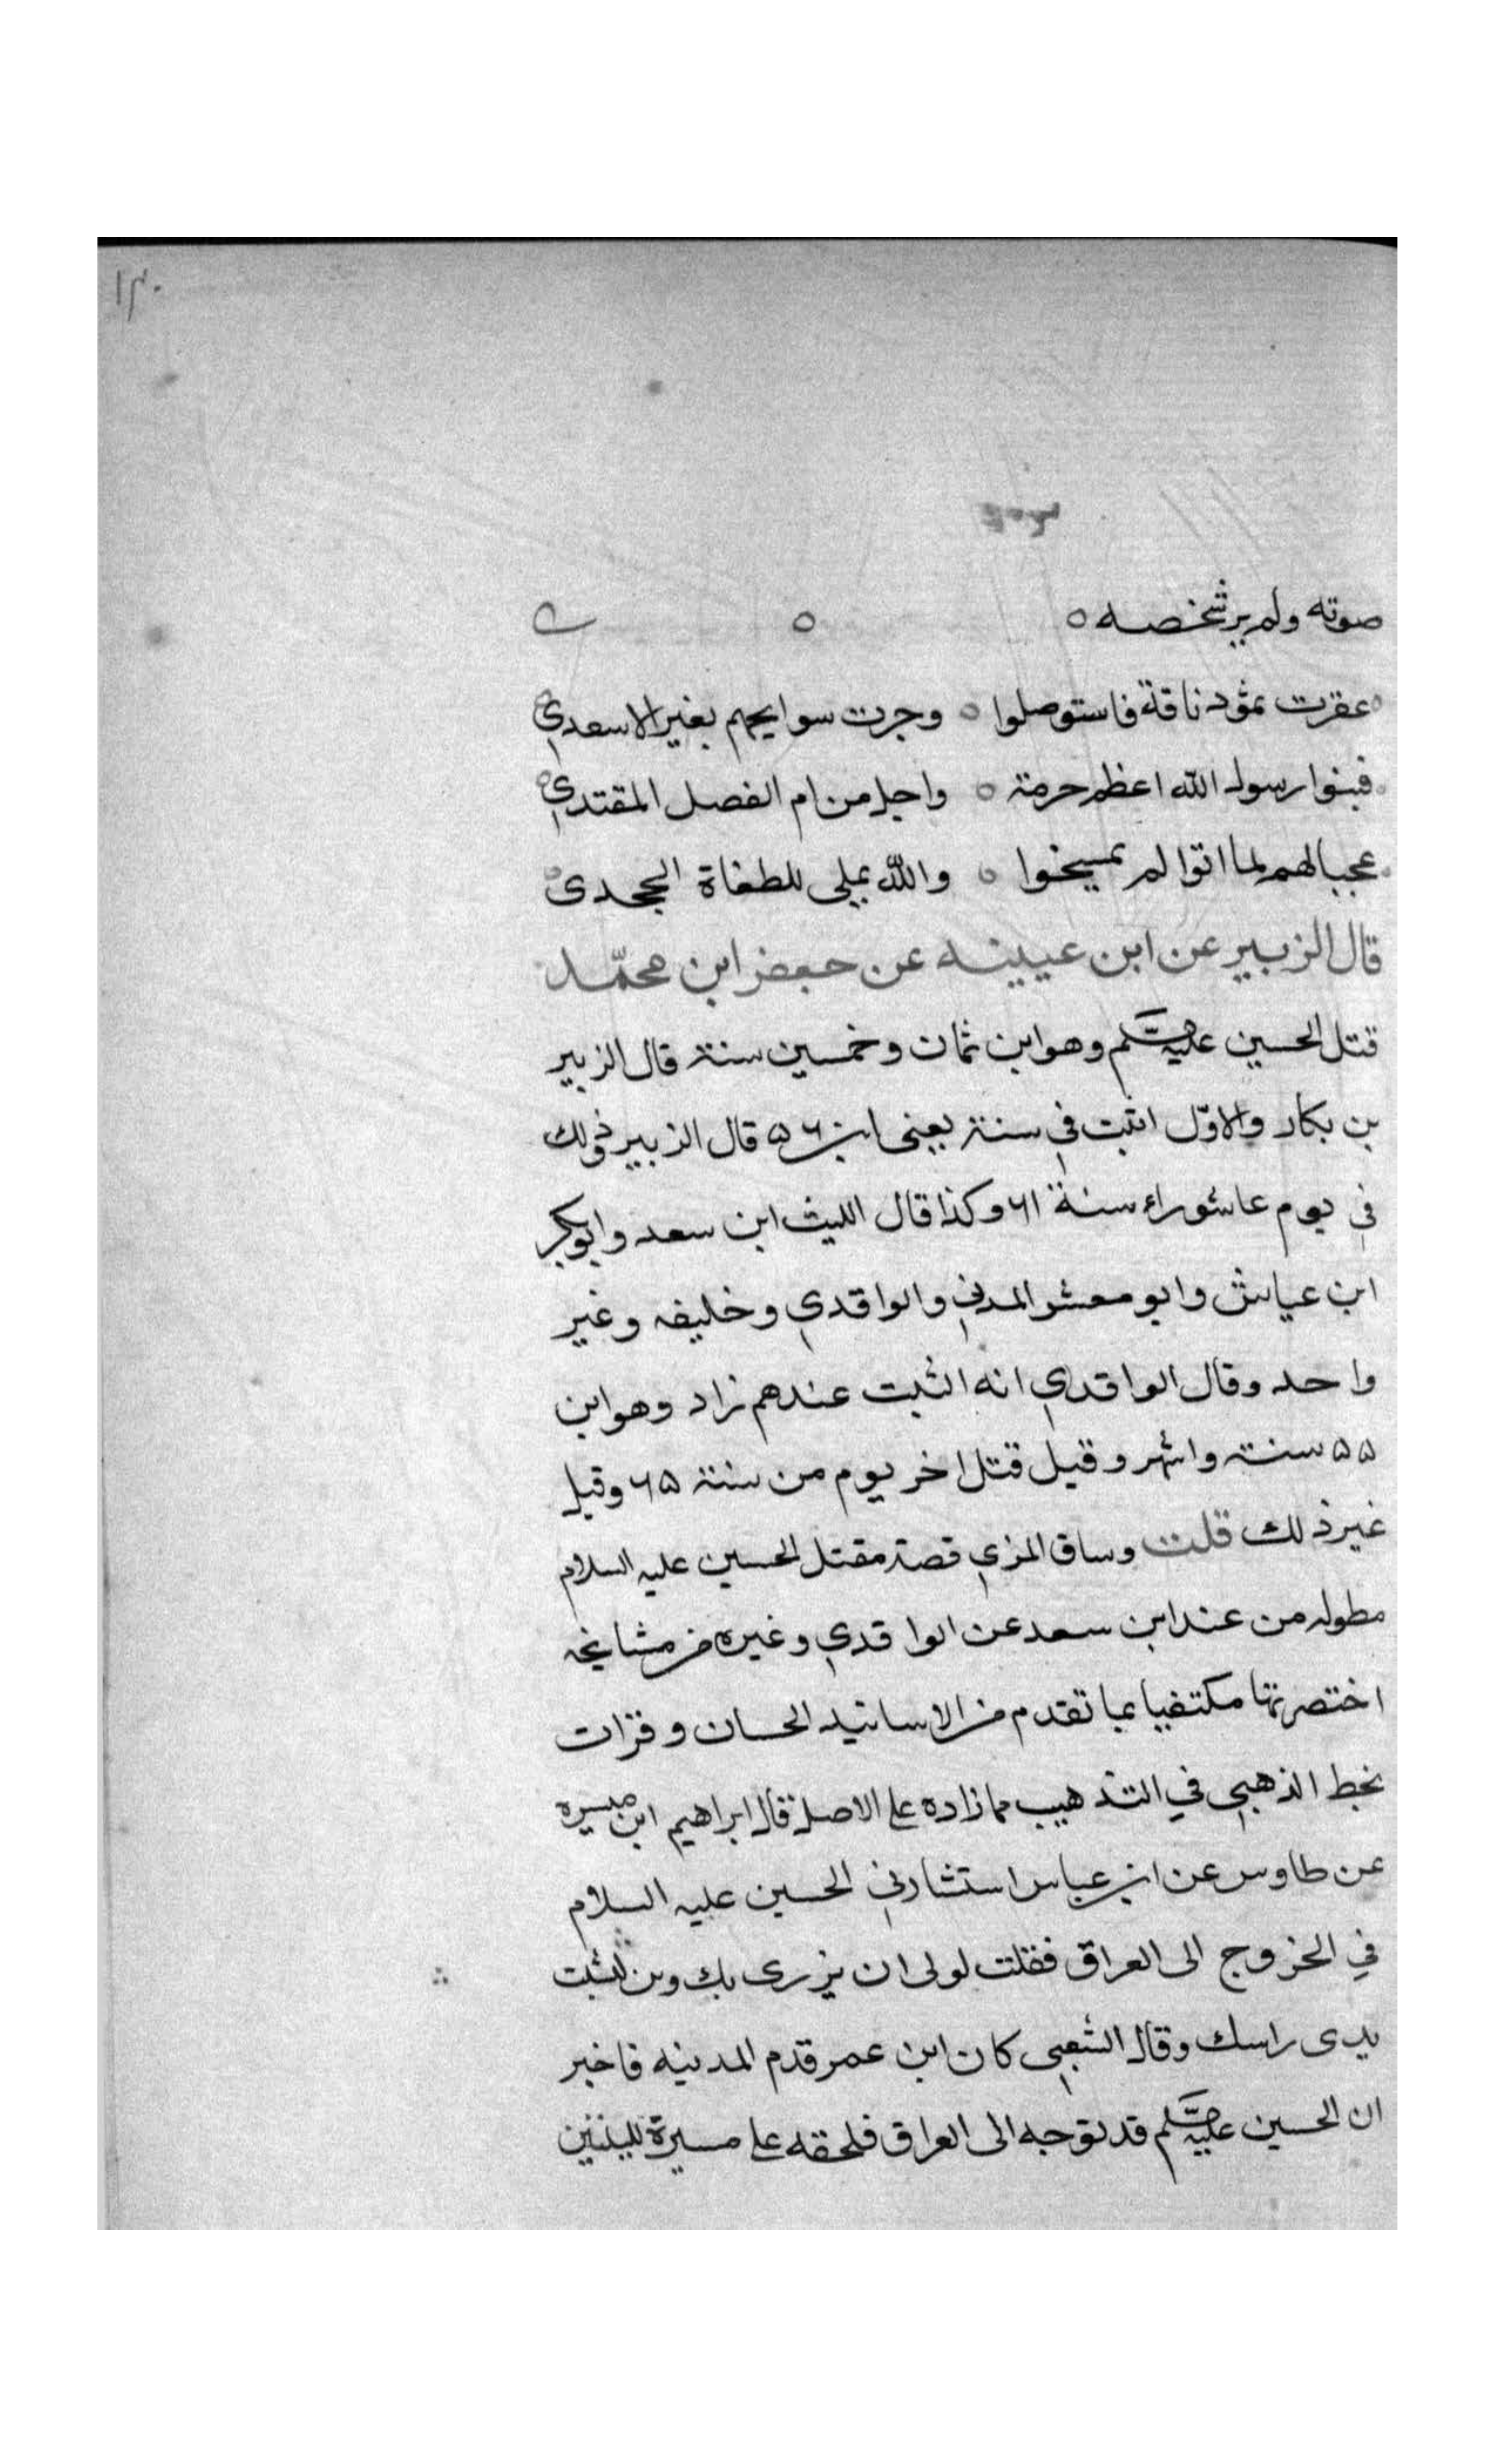 ١٣٠
صوته ولم ير شخصه
عقرت ثمود ناقة فاستوصلوا وجرت سوايحهم بغير الاسعدي
فبنوا رسول الله اعظم حرمة واجل من ام الفصل المقتدي
عجبا لهم لما اتوا لم يمسخوا والله يملي للطغاة الجحدى
قال الزبير عن ابن عيينه عن جعفر ابن محمّد
قتل الحسين عليه السلم وهو ابن ثمان وخمسين سنة قال الزبير
بن بكار والاوّل اثبت في سنة يعنى ابن ٥٦ قال الزبير وذلك
في يوم عاشوراء سنة ٦١ وكذا قال الليث ابن سعد وابو بكر
ابن عياش وابو معشر المدني والواقدي وخليفه وغير
واحد وقال الواقدي انه اثبت عندهم زاد وهو ابن
٥٥ سنة واشهر وقيل قتل اخر يوم من سنة ٦٥ وقيل
غير ذلك قلت وساق المزي قصة مقتل الحسين عليه السلام
مطوله من عند ابن سعد عن الواقدي وغيره من مشايخه
اختصرتها مكتفيا بما تقدم من الاسانيد الحسان وقرات
بخط الذهبي في التذهيب مما زاده على الاصل قال ابراهيم ابن ميسره
عن طاوس عن ابن عباس استشارني الحسين عليه السلام
في الخروج الى العراق فقلت لولى ان يزرى بك وبن لنشبت
يدى راسك وقال الشعبي كان ابن عمر قدم المدينه فاخبر
ان الحسين عليه السلم قد توجه الى العراق فلحقه على مسيرة لليلتين